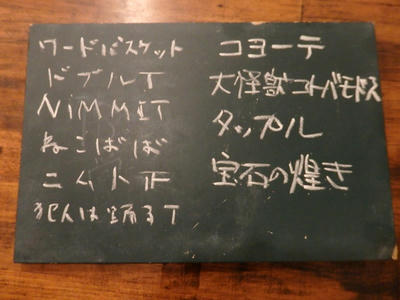 ワードバスケット
ドブルT
NiMMIT
ねこばば
ニムト正
犯人は踊るT
コヨーテ
大怪獣コトバモドス
タップル
宝石の煌き